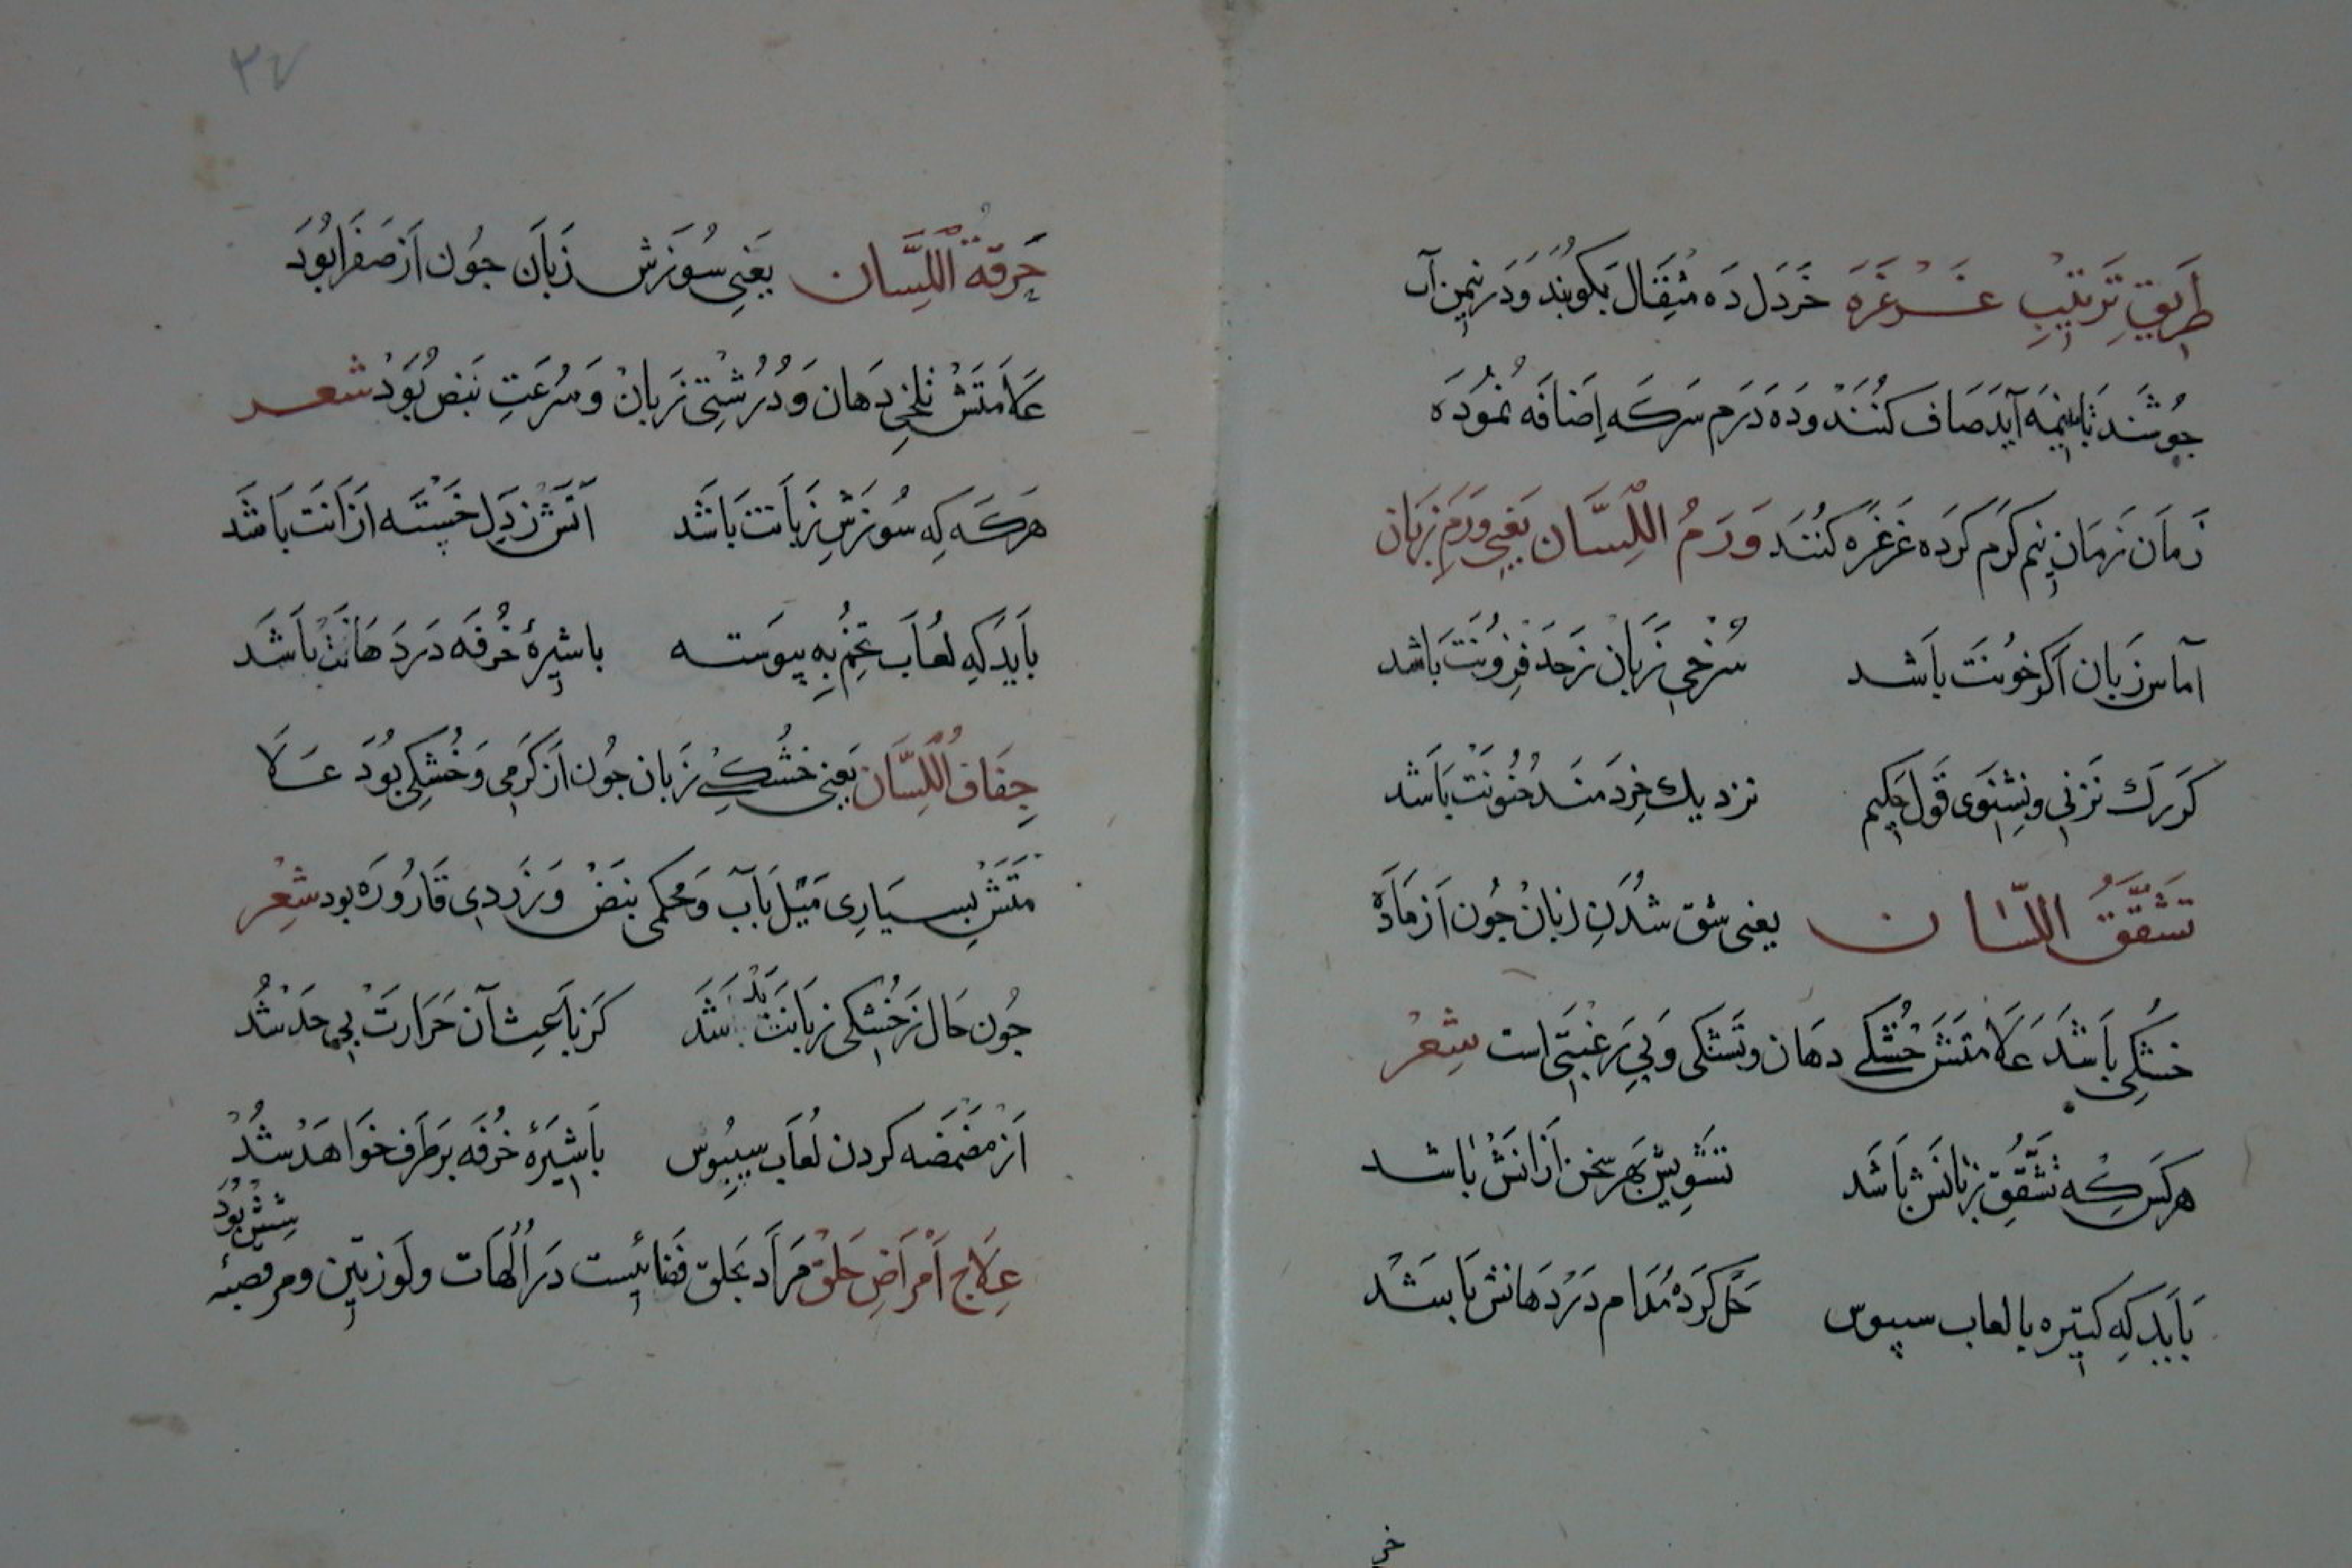 طَرِیقِ تَرتیبِ غَرغَرَه خَردَل دَه مثِقَال بکوبَند وَدَر نیمن آب
جوُشَند تَا بنیمَه آیَد صَاف کنُنَد ودَه دَرَم سَرکَه اِضَافَه نمُودَه
زَمان زَمَان نیم کَرم کَردَه غَرغَرَه کنُنَد وَرَمُ اللِّسَّان یَعنِی وَرَمِ زبَان
آماس زَبان اَکر خُونَت باَشد سُرخیِ زَبان زحَد فِزونَت باشد
کَر رَک نَزنی و نِشنَوی قَول حَکیم نزدیك خِردمَند جُنونَت بَاشد
تَشَقّقَُ اللّسَان یعنی شق شُدَنِ زبان جُون اَز مَادَّه
خُشکِی باَشَد عَلَامتَش خُشکے دهَان وتَشنکی وَبِی رَغبَتی است شِعْر
هر کَس کِه تَشَقّقِ زبَانَش بَاشَد تَشوِیش بَهر سخن اَزانَش بَاشد
بَایَد کِه کتیره با لعاب سپیوس حَل کَردَه مُدَام دَر دَهانش بَاشَد
خر
۲۷
حَرقَةُ اللِّسَّان یَعنِی سُوزش زَبَان جوُن اَز صَفرَا بُودَ
عَلامَتَش تلخیِ دَهان وَدُرُشتیِ زَبانْ وَسُرعَتِ نَبَض بُوَدْ شعر
هَرکَه کِه سُوزَشِ زبَانَت بَاشَد آتَش ز دِل خَستَه از انَت بَاشَد
بَایَد کِه لعُاَب تخمِ بِه پیوَسته باشیرهٔ خُرفَه دَر دَهَانَت بَاشَد
جِفَافُ اللِّسَّان یَعنی خشُکے زَبان جُون اَز کَرمِی وَخُشکی بُوَد عَلَا
مَتَش بِسیَارِی مَیل بَآب وَمحکمی نبَض وَزَردِی قَارُورَه بود شِعْر
جُون حَال زخُشکی زبانَت بَد باشَد کَز بَاعِث آن حَرَارَت بِی حَد شُد
اَز مضمَضَه کردن لعُاَب سپیُوس بَاشیَرهٔ خُرفَه بَرطَرَف خوَاهَد شُد
عِلَاج اَمْرَاضِ حَلق مُرَاد بَحَلق فَضائیست دَر اُو لهَات ولَوزتین ومرو قصبهٔ
شش بُوَد